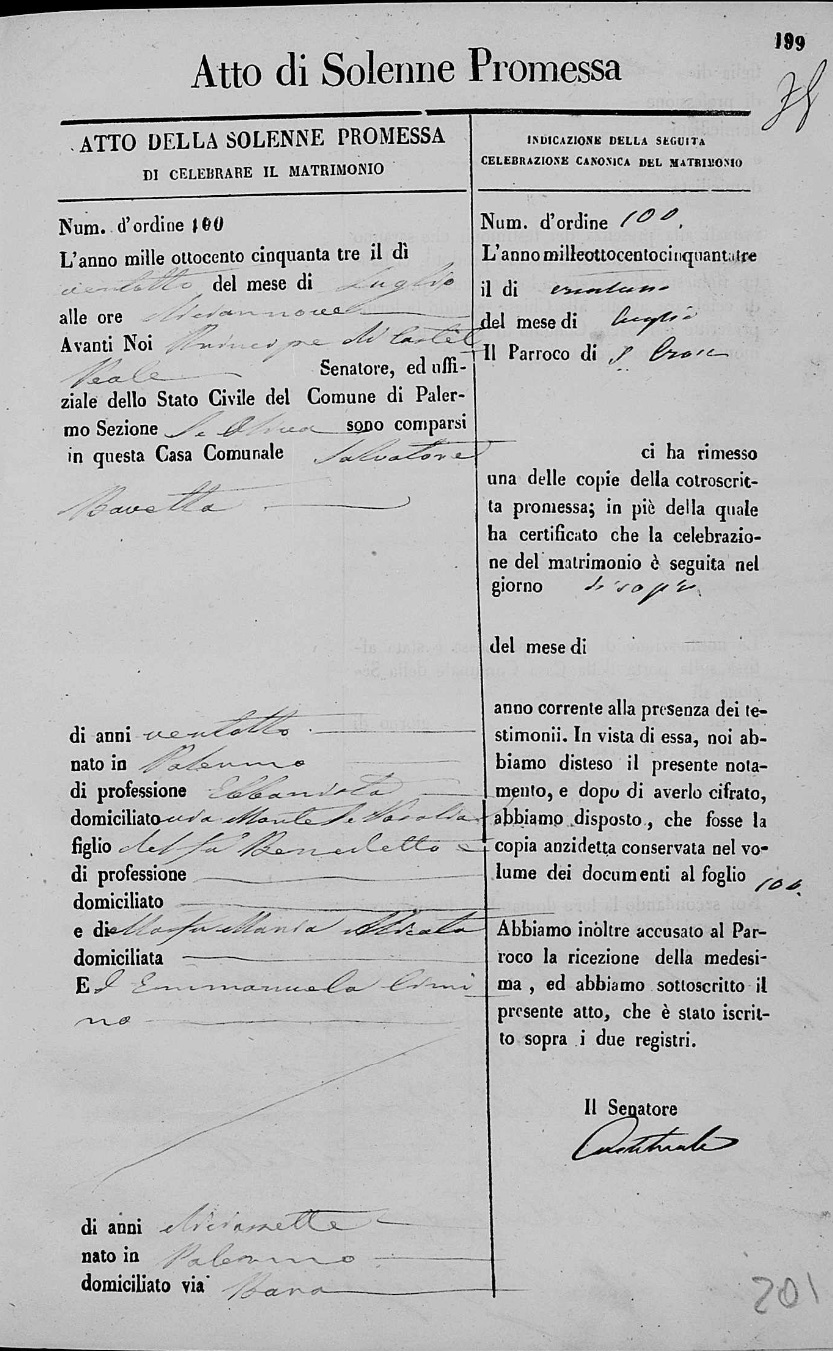 199
Atto di Solenne Promessa
ATTO DELLA SOLENNE PROMESSA
DI CELEBRARE IL MATRIMONIO
Num. d'ordine 100
L'anno mille ottocento cinquanta tre il dì
ventotto del mese di Luglio
alle ore
Avanti Noi Principe di Castel
Reale Senatore, ed uffi-
ziale dello Stato Civile del Comune di Paler-
mo Sezione sono comparsi
in questa Casa Comunale Salvatore
Bavetta
di anni ventotto
nato in Palermo
di professione Ebbanista
domiciliato via Monte
figlio del fu Benedetto
di professione
domiciliato
e di Maria
domiciliata
Ed Emmanuela Cimi
no
di anni diciassette
nato in Palermo
domiciliato via Bara
INDICAZIONE DELLA SEGUITA
CELEBRAZIONE CANONICA DEL MATRIMONIO
Num. d'ordine 100.
L'anno milleottocentocinquantatre
il di trentuno
del mese di luglio
Il Parroco di S. Croce
ci ha rimesso
una delle copie della cotroscrit-
ta promessa; in piè della quale
ha certificato che la celebrazio-
ne del matrimonio è seguita nel
giorno di sopra
del mese di
anno corrente alla presenza dei te-
stimonii. In vista di essa, noi ab-
biamo disteso il presente nota-
mento, e dopo di averlo cifrato,
abbiamo disposto, che fosse la
copia anzidetta conservata nel vo-
lume dei documenti al foglio 100.
Abbiamo inoltre accusato al Par-
roco la ricezione della medesi-
ma, ed abbiamo sottoscritto il
presente atto, che è stato iscrit-
to sopra i due registri.
Il Senatore
201